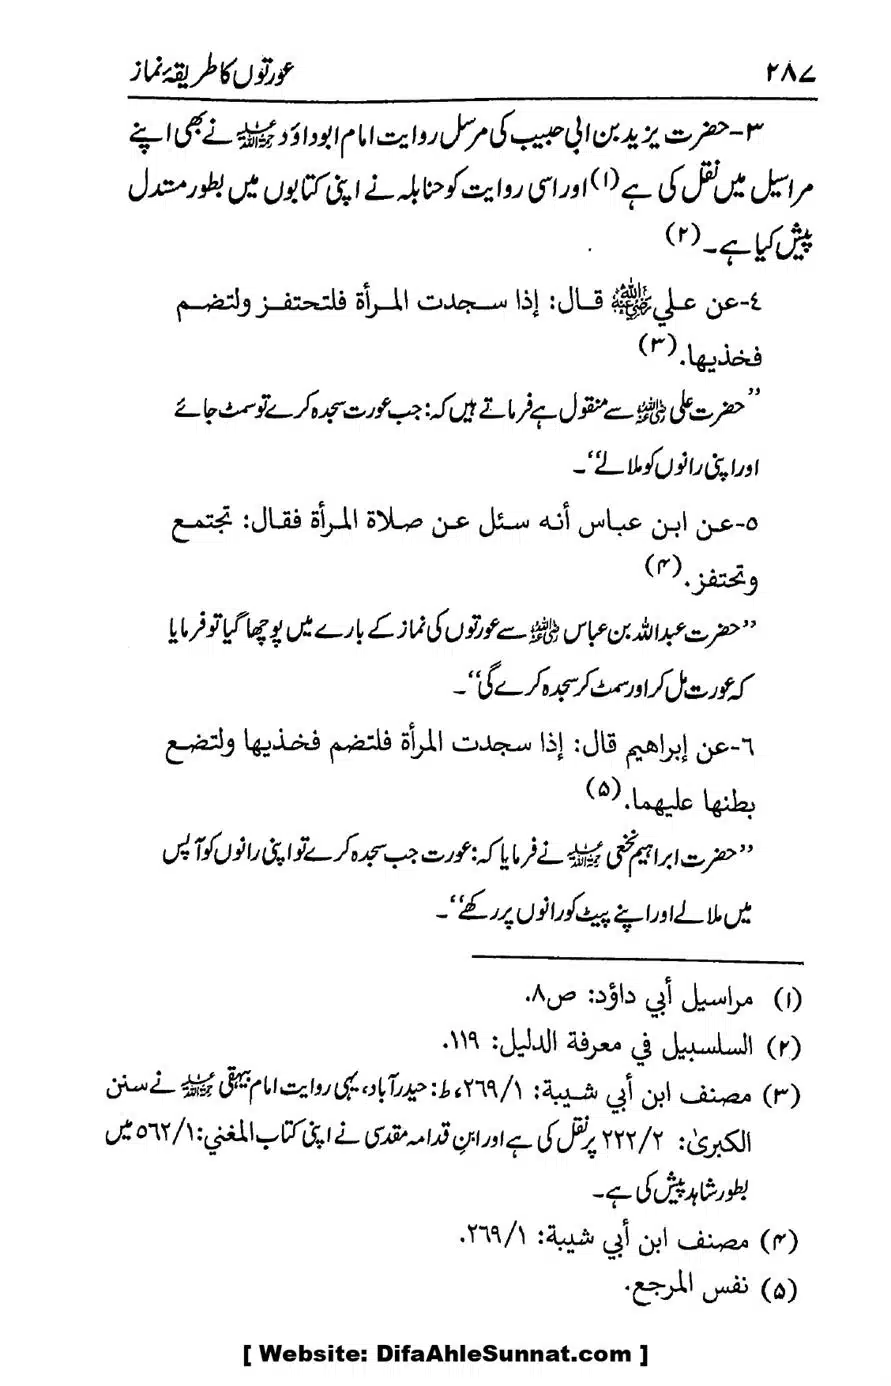 ۲۸۷ عورتوں کا طریقۂ نماز
۳-حضرت یزید بن ابی حبیب کی مرسل روایت امام ابوداؤد رحمۃ اللہ علیہ نے بھی اپنے
مراسیل میں نقل کی ہے (۱) اور اسی روایت کو حنابلہ نے اپنی کتابوں میں بطور مستدل
پیش کیا ہے۔ (۲)
٤-عن علي رضی اللہ عنہ قال: إذا سجدت المرأة فلتحتفز ولتضم
فخذيها. (۳)
’’حضرت علی رضی اللہ عنہ سے منقول ہے فرماتے ہیں کہ: جب عورت سجدہ کرے تو سمٹ جائے
اور اپنی رانوں کو ملالے‘‘۔
٥-عن ابن عباس أنه سئل عن صلاة المرأة فقال: تجتمع
وتحتفز. (۴)
’’حضرت عبداللہ بن عباس رضی اللہ عنہ سے عورتوں کی نماز کے بارے میں پوچھا گیا تو فرمایا
کہ عورت مل کر اور سمٹ کر سجدہ کرے گی‘‘۔
٦-عن إبراهيم قال: إذا سجدت المرأة فلتضم فخذيها ولتضع
بطنها عليهما. (۵)
’’حضرت ابراہیم نخعی رحمۃ اللہ علیہ نے فرمایا کہ: عورت جب سجدہ کرے تو اپنی رانوں کو آپس
میں ملالے اور اپنے پیٹ کو رانوں پر رکھے‘‘۔
(۱) مراسيل أبي داؤد: ص۸.
(۲) السلسبيل في معرفة الدليل: ۱۱۹.
(۳) مصنف ابن أبي شيبة: ۲٦۹/۱، ط: حیدرآباد، یہی روایت امام بیہقی رحمۃ اللہ علیہ نے سنن
الكبرىٰ: ۲۲۲/۲ پر نقل کی ہے اور ابن قدامہ مقدسی نے اپنی کتاب المغني: ٥٦۲/۱ میں
بطور شاہد پیش کی ہے۔
(۴) مصنف ابن أبي شيبة: ۲٦۹/۱.
(۵) نفس المرجع.
[ Website: DifaAhleSunnat.com ]